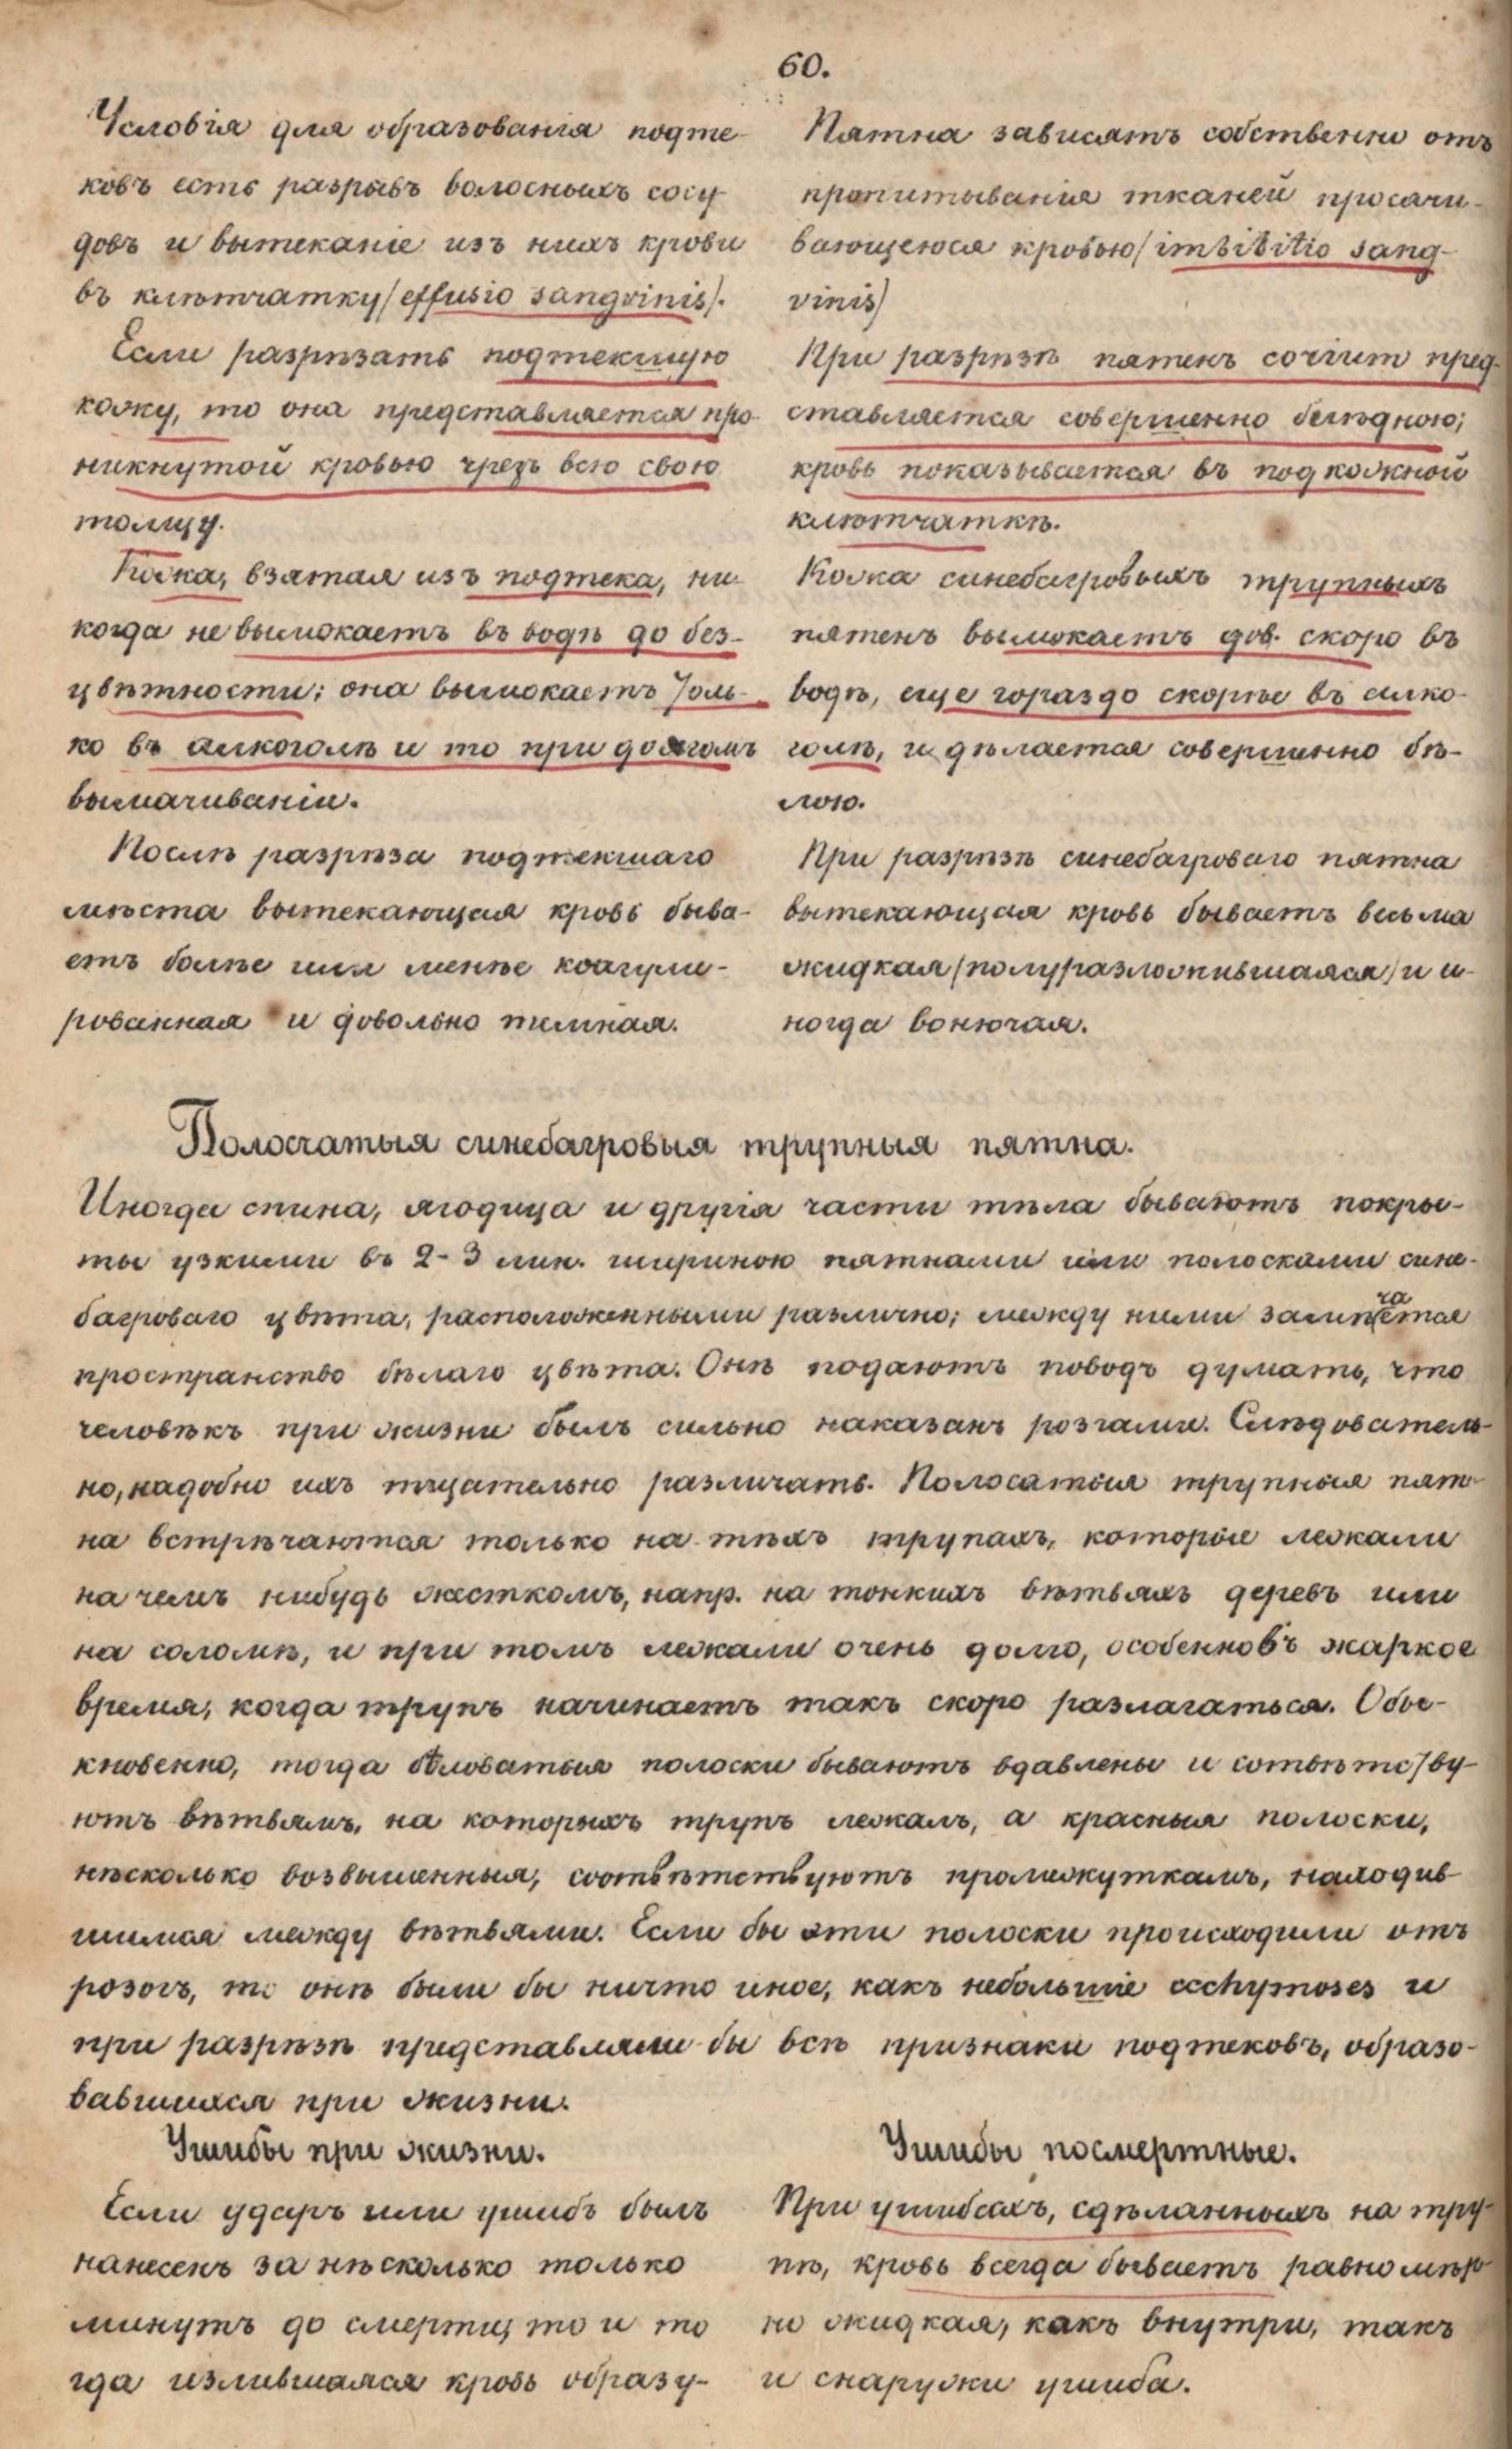 60.
Условія для образованія подте-
ковъ есть разрывъ волосныхъ сосу-
довъ и вытеканіе изъ нихъ крови
въ клѣтчатку/effusio sangvinis/.
Если разрѣзать подтекшую
кожу, то она представляется про-
никнутой кровью чрезъ всю свою
толщу.
Кожа, взятая изъ подтека, ни-
когда не вымокаетъ въ водѣ до без-
цвѣтности; она вымокаетъ толь-
ко въ алкоголѣ и то при долгомъ
вымачиваніи.
Послѣ разрѣза подтекшаго
мѣста вытекающая кровь быва-
етъ болѣе или менѣе коагули-
рованная и довольно темная.
Пятна зависятъ собственно отъ
пропитыванія тканей просачи-
вающеюся кровью/imbibitio sang-
vinis/
При разрѣзѣ пятенъ corium пред-
ставляется совершенно блѣдною;
кровь показывается въ подкожной
клѣтчаткѣ.
Кожа синебагровыхъ трупныхъ
пятенъ вымокаетъ дов. скоро въ
водѣ, еще гораздо скорѣе въ алко-
голѣ, и дѣлается совершенно бѣ-
лою.
При разрѣзѣ синебагроваго пятна
вытекающая кровь бываетъ весьма
жидкая/полуразложившаяся/и и-
ногда вонючая.
Полосчатыя синебагровыя трупныя пятна.
Иногда спина, ягодица и другія части тѣла бываютъ покры-
ты узкими въ 2-3 лин. шириною пятнами или полосками сине-
багроваго цвѣта, расположенными различно; между ними замѣчается
пространство бѣлаго цвѣта. Онѣ подаютъ поводъ думать, что
человѣкъ при жизни былъ сильно наказанъ розгами. Слѣдователь-
но, надобно ихъ тщательно различать. Полосатыя трупныя пят-
на встрѣчаются только на тѣхъ трупахъ, которые лежали
на чемъ нибудь жесткомъ, напр. на тонкихъ вѣтвяхъ деревъ или
на соломѣ, и при томъ лежали очень долго, особенно въ жаркое
время, когда трупъ начинаетъ такъ скоро разлагаться. Обы-
кновенно, тогда бѣловатыя полоски бываютъ вдавлены и сотвѣтству-
ютъ вѣтвямъ, на которыхъ трупъ лежалъ, а красныя полоски,
нѣсколько возвышенныя, соотвѣтствуютъ промежуткамъ, находив-
шимся между вѣтвями. Если бы эти полоски происходили отъ
розогъ, то онѣ были бы ничто иное, какъ небольшіе ecchymoses и
при разрѣзѣ представляли бы всѣ признаки подтековъ, образо-
вавшихся при жизни.
Ушибы при жизни.
Если ударъ или ушибъ былъ
нанесенъ за нѣсколько только
минутъ до смерти, то и то
гда излившаяся кровь образу-
Ушибы посмертные.
При ушибахъ, сдѣланныхъ на тру-
пѣ, кровь всегда бываетъ равномѣр-
но жидкая, какъ внутри, такъ
и снаружи ушиба.